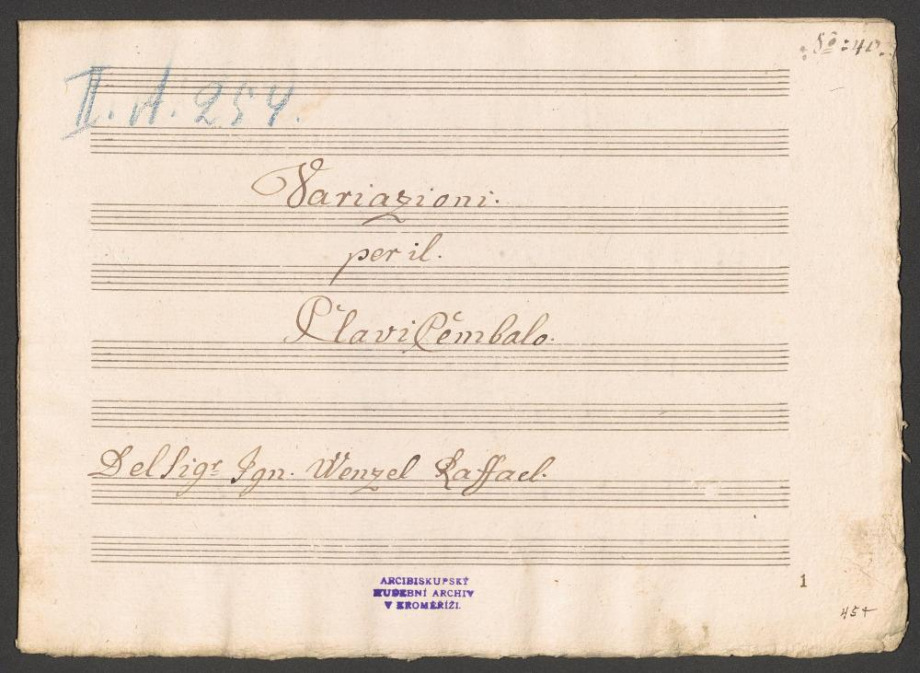 No: 40.
II. A. 254.
Variazioni.
per il.
Clavi Cembalo.
Del Sigr Ign. Wenzel Raffael.
ARCIBISKUPSKÝ
HUDEBNÍ ARCHIV
V KROMĚŘÍŽI.
1
454